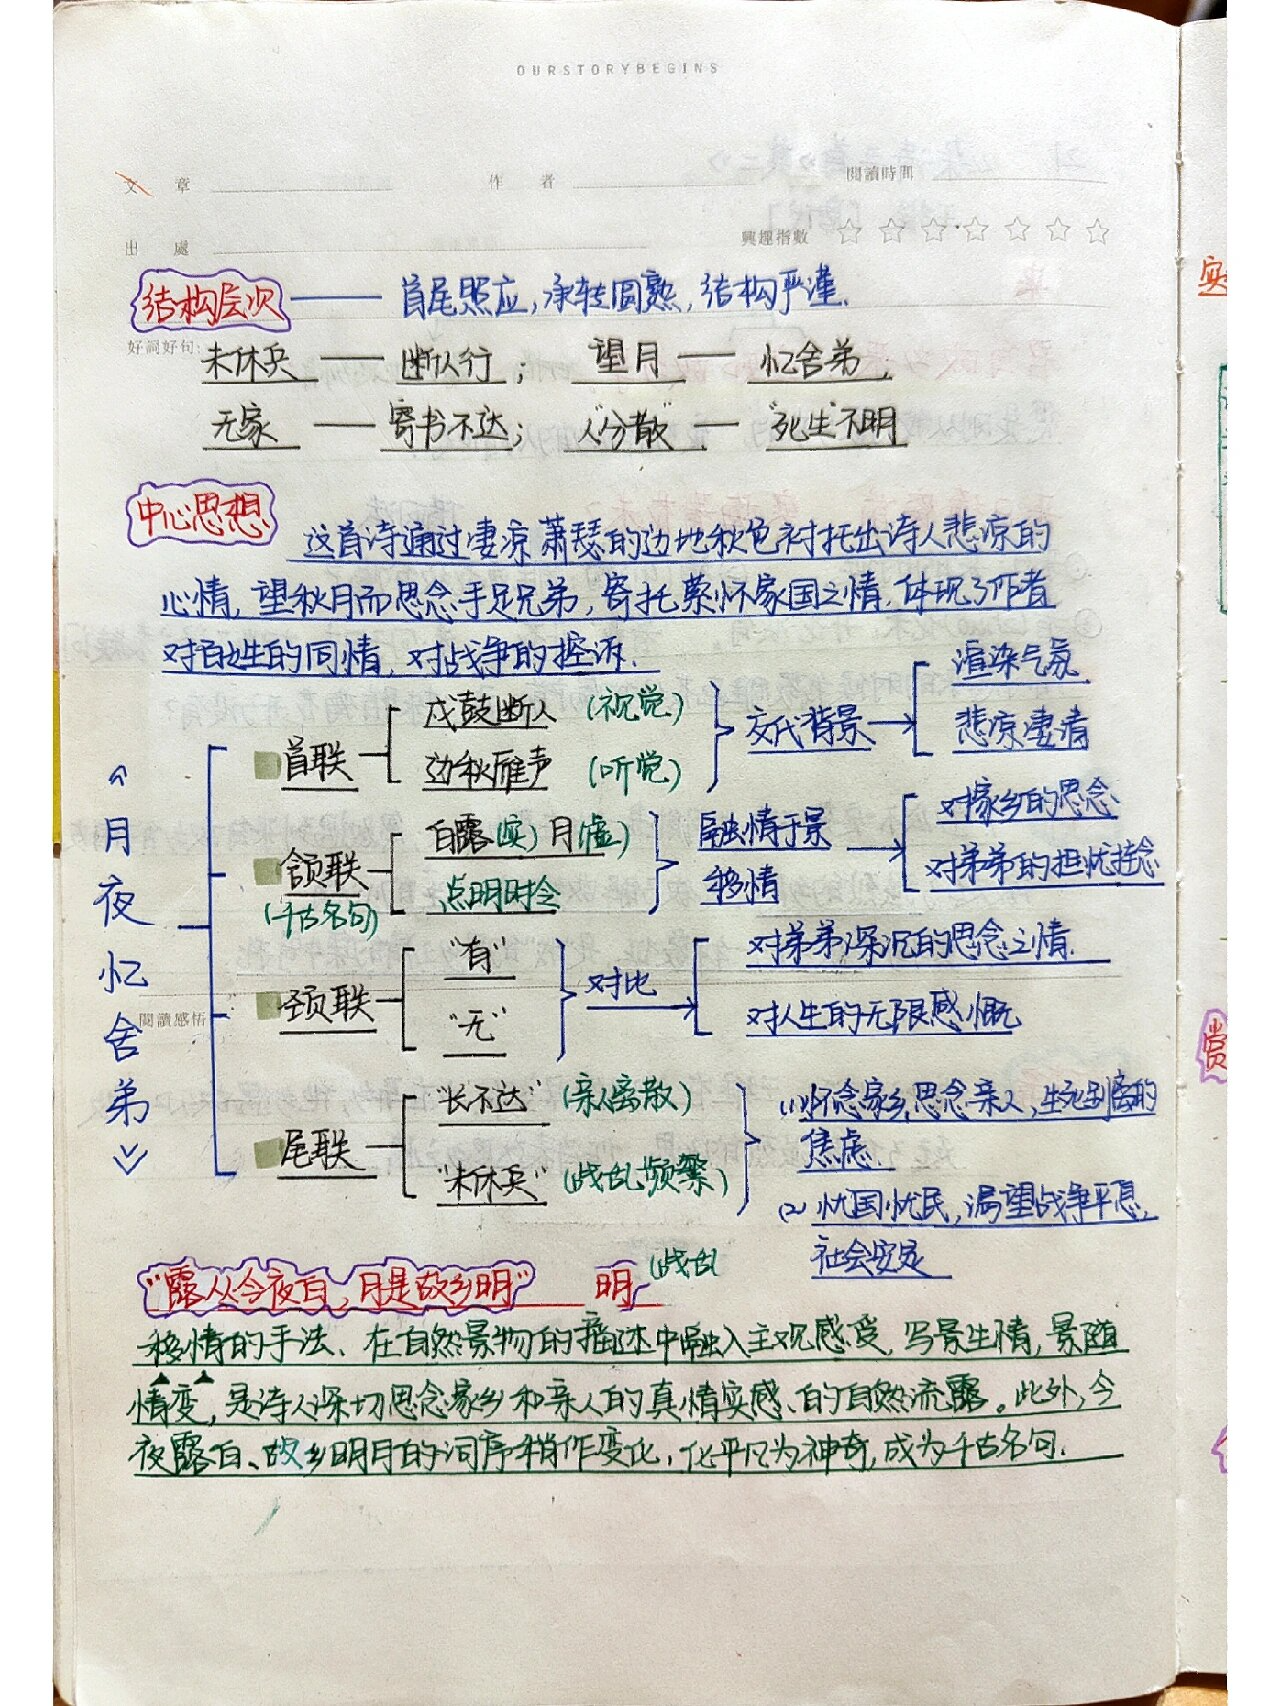 OURSTORYBEGINS
文 章 作 者 閱讀時間
出 處 興趣指數
结构层次 —— 首尾照应,承转圆熟,结构严谨.
好詞好句:
未休兵 —— 断人行; 望月 —— 忆舍弟,
无家 —— 寄书不达; 人"分散" —— "死生"不明
中心思想 这首诗通过凄凉萧瑟的边地秋色衬托出诗人悲凉的
心情,望秋月而思念手足兄弟,寄托萦怀家国之情,体现了作者
对百姓的同情,对战争的控诉.
《月夜忆舍弟》
首联 戍鼓断人 (视觉) 交代背景 渲染气氛
边秋雁声 (听觉) 悲凉凄清
颔联 白露(实) 月(虚) 融情于景 对家乡的思念
(千古名句) 点明时令 移情 对弟弟的担忧挂念
颈联 "有" 对比 对弟弟深沉的思念之情.
"无" 对人生的无限感慨
閱讀感悟
尾联 "长不达" (亲人离散) (1)怀念家乡,思念亲人,生死别离的
焦虑.
"未休兵" (战乱频繁) (2)忧国忧民,渴望战争平息,
社会安定
"露从今夜白,月是故乡明" 明 (战乱
移情的手法、在自然景物的描述中融入主观感受,写景生情,景随
情变,是诗人深切思念家乡和亲人的真情实感、的自然流露。此外,今
夜露白、故乡明月的词序稍作变化,化平凡为神奇,成为千古名句.
实
赏